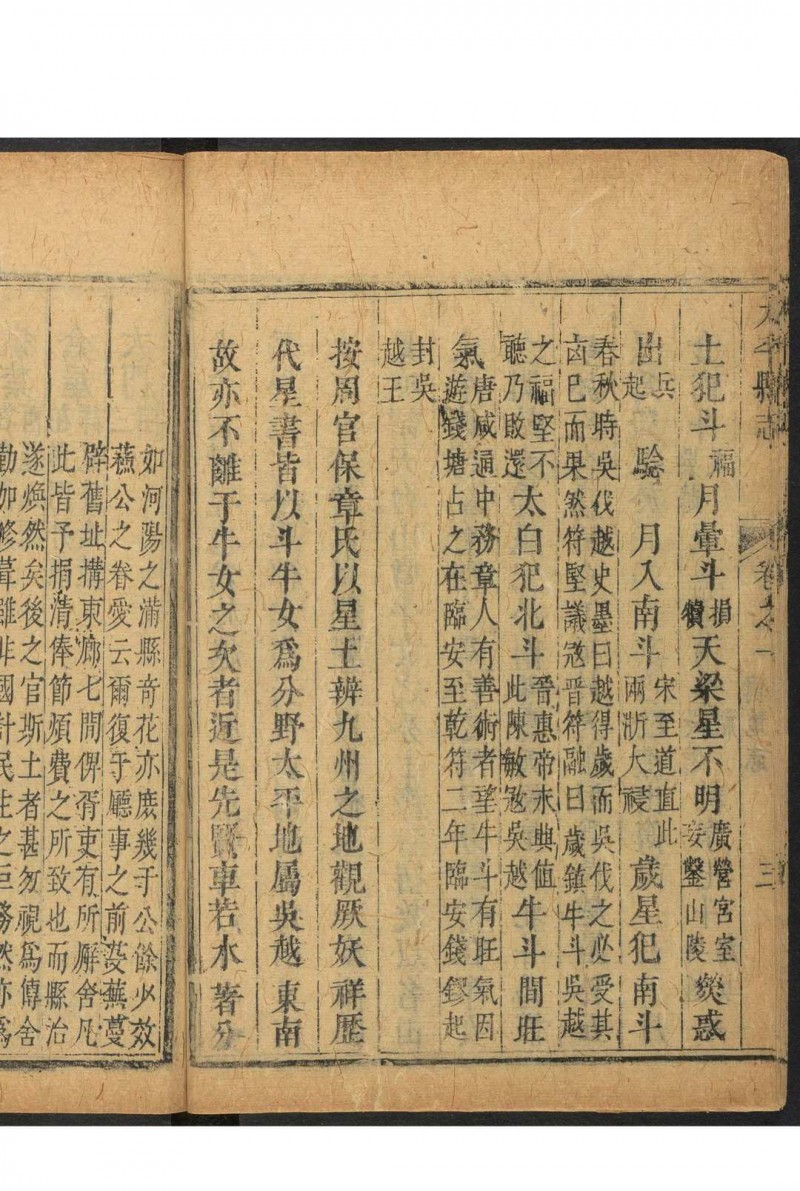 太平縣志 卷之一 三
土犯斗福月暈斗損犢天梁星不明廣營宮室妄鑿山陵熒惑
出兵起 驗 月入南斗宋至道直此兩浙大祲歲星犯南斗
春秋時吳伐越史墨曰越得歲而吳伐之必受其
凶已而果然符堅議寇晉符融曰歲鎮牛斗吳越
之福堅不聽乃敗還太白犯北斗晉惠帝末典值此陳敏寇吳越牛斗間旺
氣唐咸通中務章人有善術者望牛斗有旺氣因遊錢塘占之在臨安至乾符二年臨安錢鏐起
封吳越王
按周官保章氏以星土辨九州之地觀厥妖祥歷
代星書皆以斗牛女爲分野太平地屬吳越東南
故亦不離于牛女之次者近是先賢車若水著分
如河陽之滿縣奇花亦庶幾于公餘少效
蘓公之眷愛云爾復于廳事之前芟蕪蔓
辟舊址搆東廊七間俾胥吏有所廨舍凡
此皆予捐清俸節煩費之所致也而縣治
遂煥然矣後之官斯土者甚勿視爲傳舍
勤加修葺雖非國計民生之巨務然亦爲